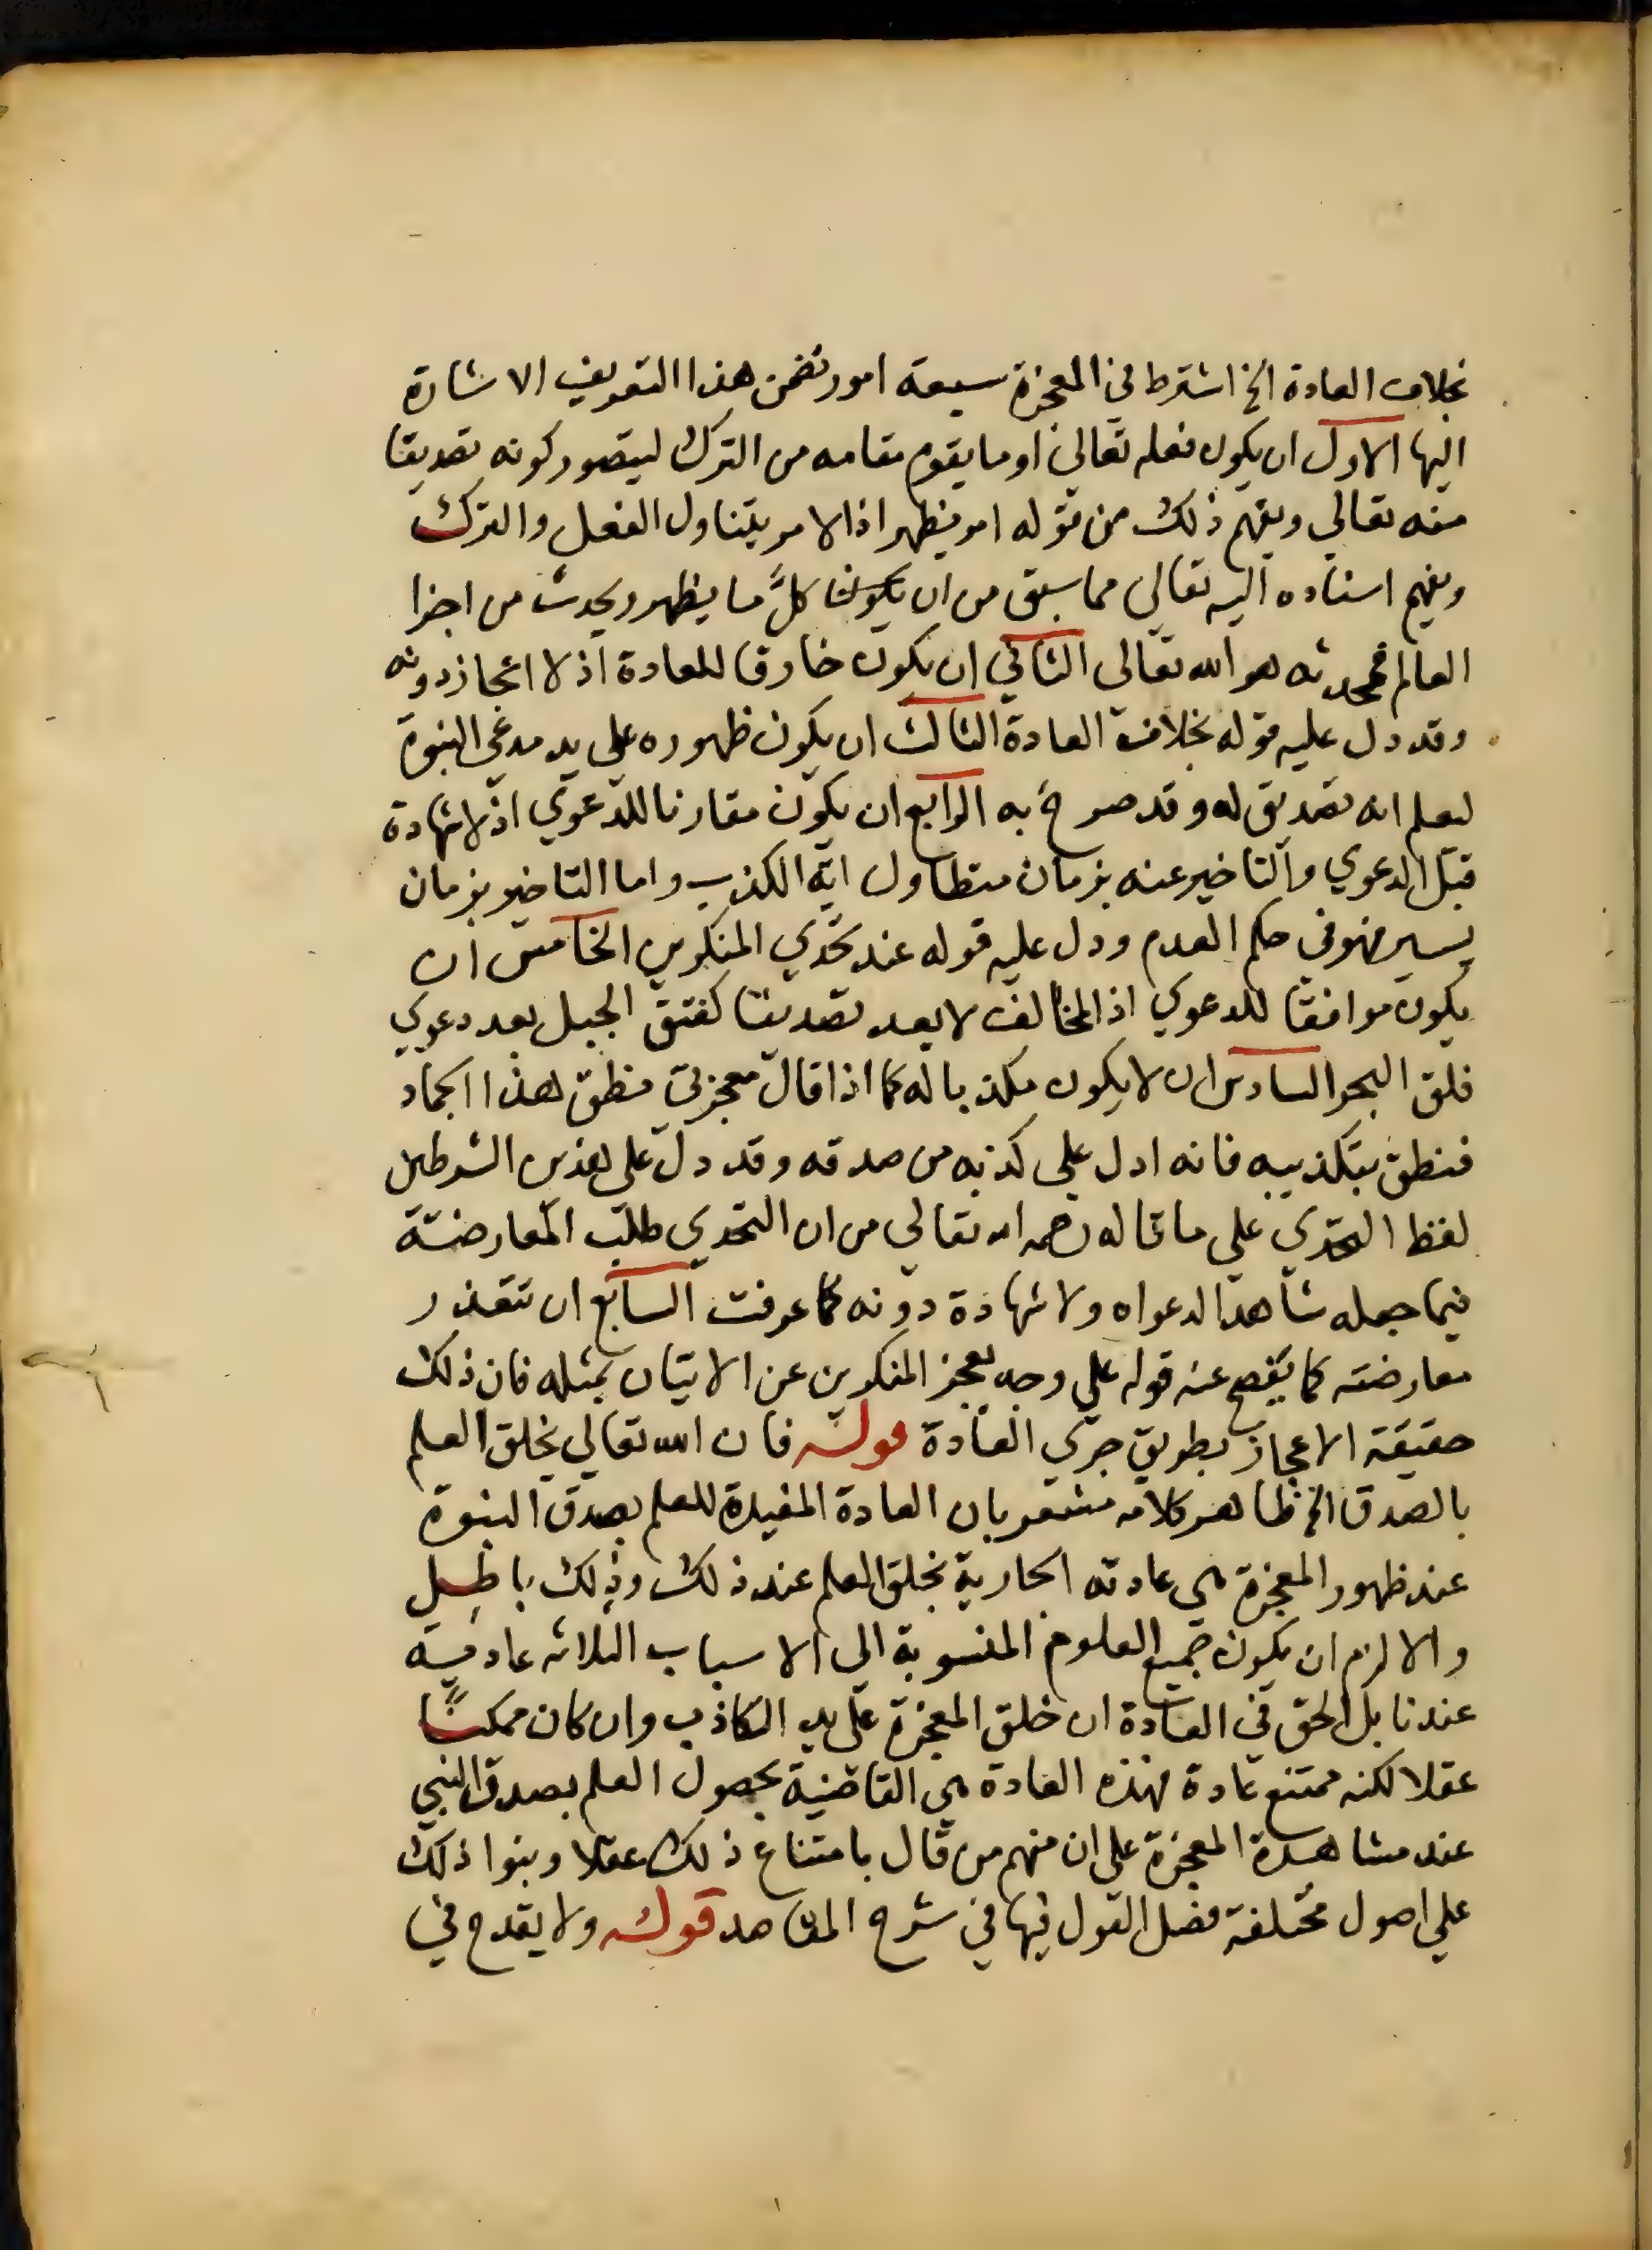 بخلاف العادة الخ اشترط في المعجزة سبعة امور تضمن هذا التعريف الاشارة
اليها الاول ان يكون فعله تعالى او ما يقوم مقامه من الترك ليتصور كونه تصديقا
منه تعالي ويفهم ذلك من قوله امر يظهر اذ الامر يتناول الفعل والترك
ويفهم اسناده اليه تعالى مما سبق من ان كل ما يظهر ويحدث من اجزا
العالم فمحدثه هو الله تعالى الثاني ان يكون خارقا للعادة اذ لا اعجاز دونه
وقد دل عليه قوله بخلاف العادة الثالث ان يكون ظهوره علي يد مدعي النبوة
ليعلم انه تصديق له وقد صرح به الرابع ان يكون مقارنا للدعوي اذ لا شهادة
قبل الدعوي والتاخير عنه بزمان متطاول اية الكذب واما التاخير بزمان
يسير فهو في حكم العدم ودل عليه قوله عند تحدي المنكرين الخامس ان
يكون موافقا للدعوي اذ المخالف لا يعد تصديقا كفتق الجبل بعد دعوي
فلق البحر السادس ان لا يكون مكذبا له كما اذا قال معجزتي نطق هذا الجماد
فنطق بتكذيبه فانه ادل علي كذبه من صدقه وقد دل على هذين الشرطين
لفظ التحدي علي ما قاله رحمه الله تعالي من ان التحدي طلب المعارضة
فيما جعله شاهدا لدعواه ولا شهادة دونه كما عرفت السابع ان تتعذر
معارضته كما يفصح عنه قوله علي وجه يعجز المنكرين عن الاتيان بمثله فان ذلك
حقيقة الاعجاز بطريق جري العادة قوله فان الله تعالي يخلق العلم
بالصدق الخ ظاهر كلامه مشعر بان العادة المفيدة للعلم بصدق النبوة
عند ظهور المعجزة هي عادته الجارية بخلق العلم عند ذلك وذلك باطل
والا لزم ان يكون جميع العلوم المنسوبة الي الاسباب الثلاثه عادية
عندنا بل الحق في العادة ان خلق المعجزة على يد الكاذب وان كان ممكنًا
عقلا لكنه ممتنع عادة فهذه العادة هي القاضية بحصول العلم بصدق النبي
عند مشاهدة المعجزة على ان منهم من قال بامتناع ذلك عقلا وبنوا ذلك
علي اصول مختلفة فصل القول فيها في شرح المقاصد قوله ولا يقدح في